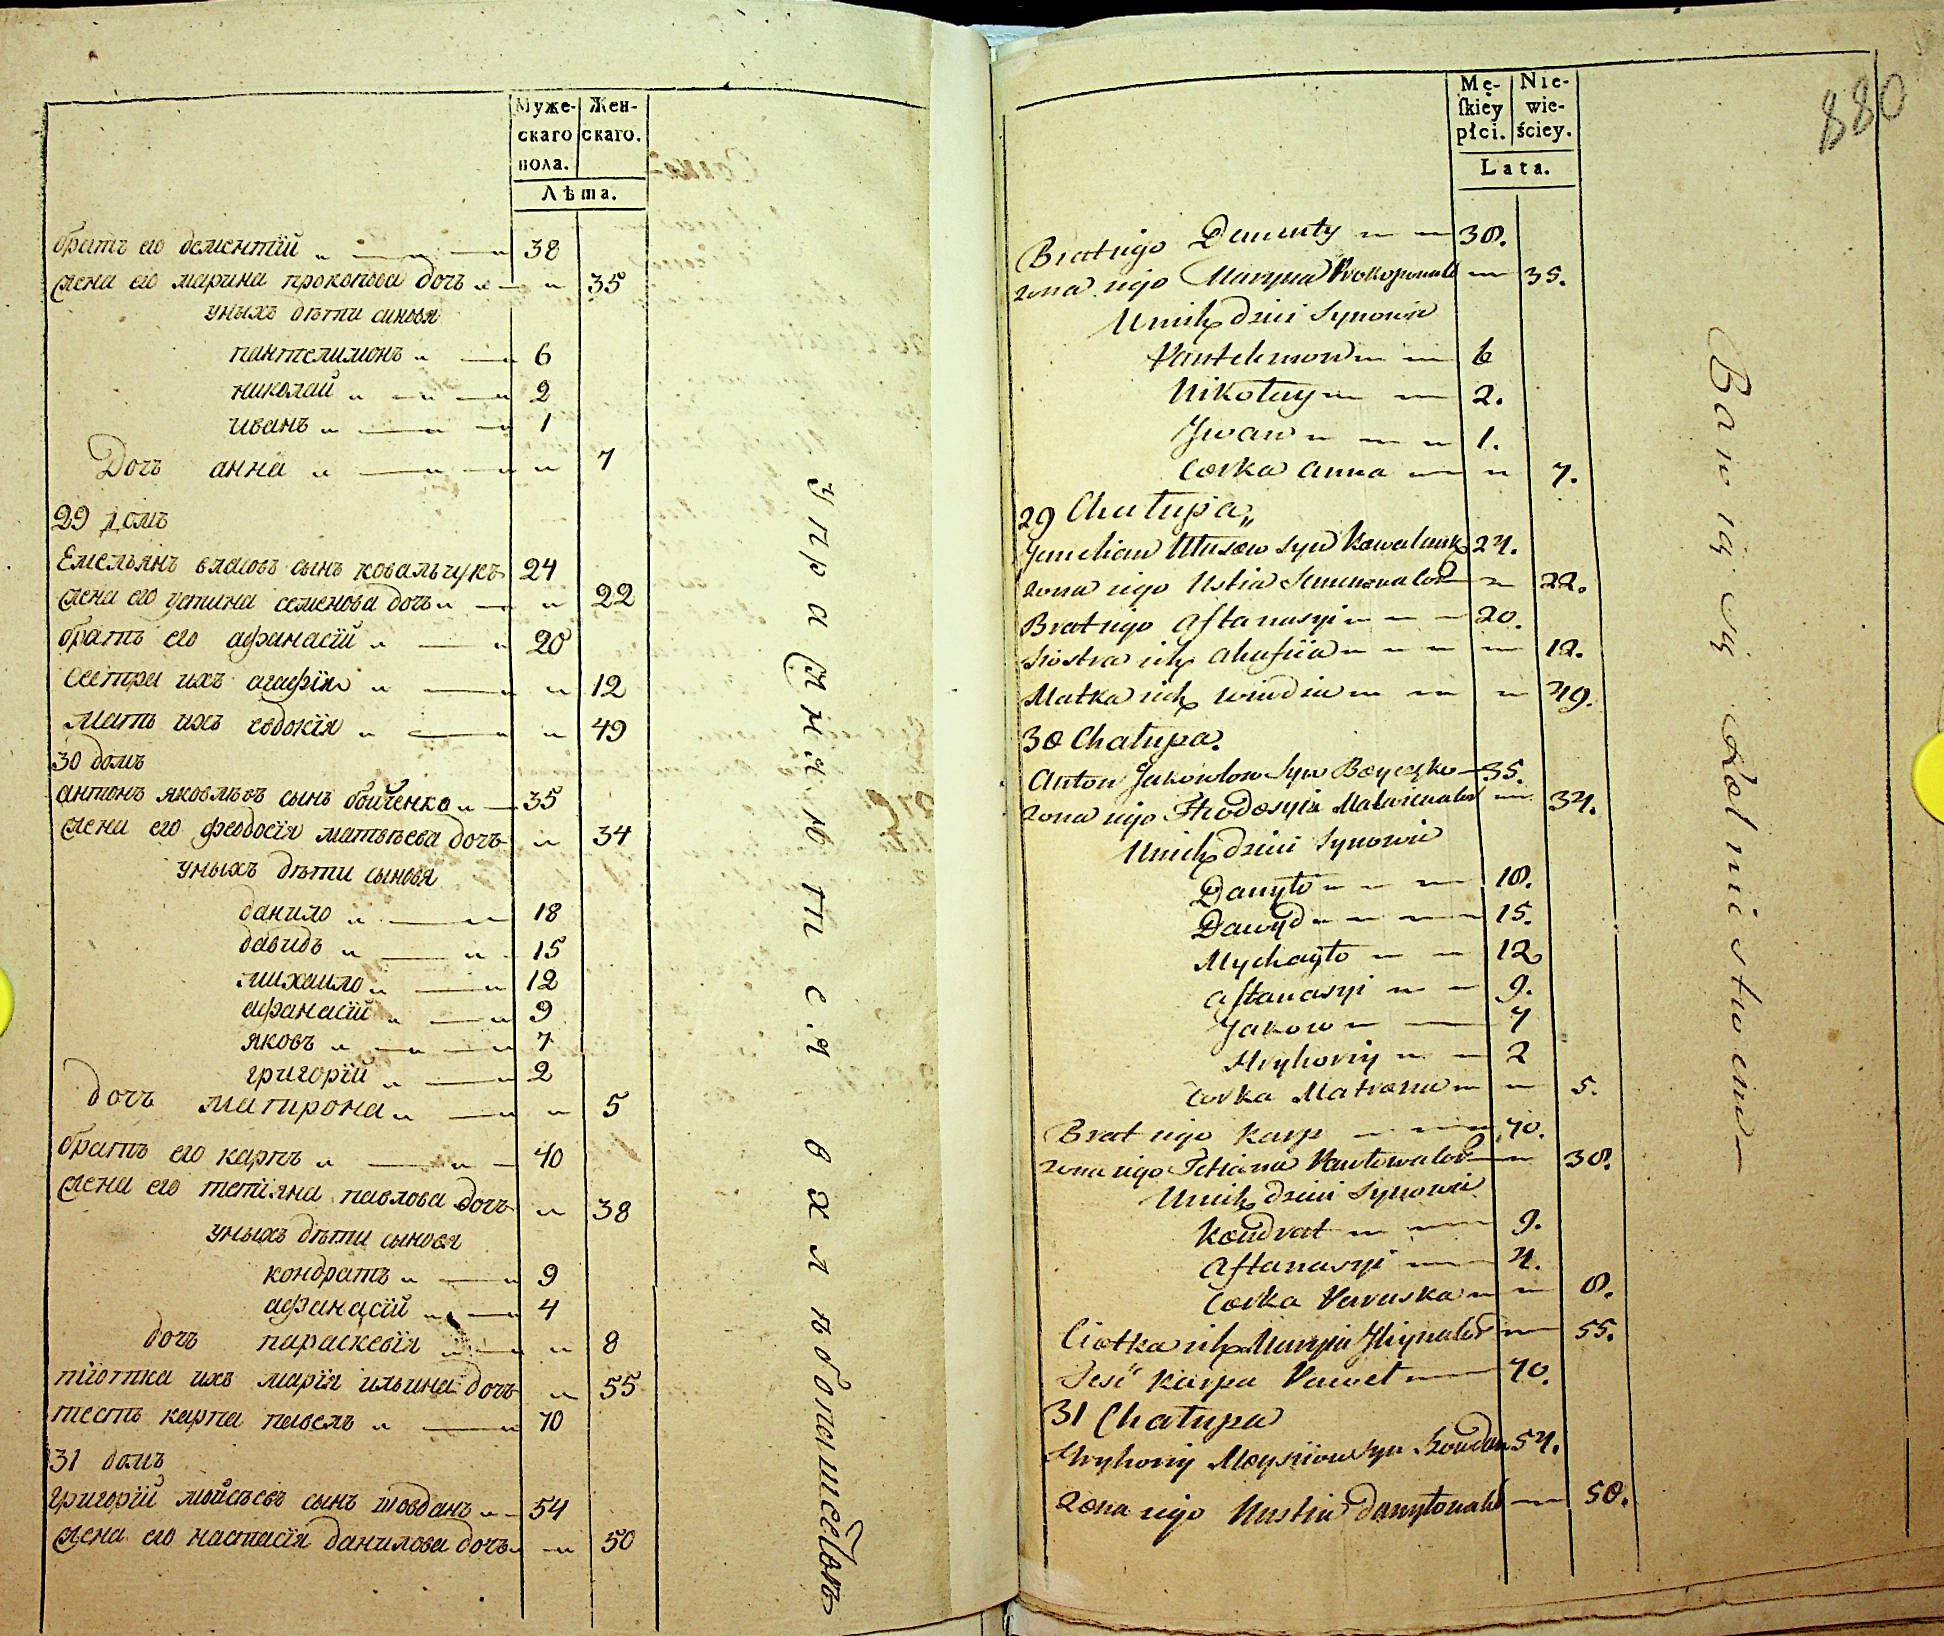 Муже-
скаго
пола.
Жен-
скаго.
Лѣта.
братъ его дементїй 38
жена его марина прокопова дочъ 35
уныхъ дѣти синовя
пантелимонъ 6
николай 2
иванъ 1
Дочъ анна 7
29 домъ
Емельянъ власовъ сынъ ковальчукъ 24
жена его устина семенова дочъ 22
братъ его афанасїй 20
сестра ихъ агафїя 12
мать ихъ евдокїя 49
30 домъ
антонъ яковлѣвъ сынъ бойченко 35
жена его феодосїя матвѣева дочъ 34
уныхъ дѣти сыновя
данило 18
давидъ 15
михаило 12
афанасїй 9
яковъ 7
григорїй 2
дочъ матрона 5
братъ его карпъ 40
жена его тетїяна павлова дочъ 38
уныхъ дѣти сыновя
кондратъ 9
афанасїй 4
дочъ параскевїя 8
тїотка ихъ марїя ильина дочъ 55
тесть карпа павелъ 70
31 домъ
григорїй мойсѣевъ сынъ жовданъ 54
жена его настасїя данилова дочъ 50
упражняются в хлѣбопашествъ
880
Mę-
ſkiéy
płci.
Nie-
wie-
ściey.
Lata.
Brat iego Dementy 38.
zona iego Maryna Prokopowa 35.
Unich dzieci Synowie
Pantelimon 6
Nikołay 2.
Jwan 1.
Corka Anna 7.
29 Chałupa
Jemelian Własow Syn Kowalczuk 24.
zona iego Ustia Semenowa Cor 22.
Brat iego Aftanasyi 20.
Siostra ich Ahafiia 12.
Matka ich 49.
30 Chałupa.
Anton Jakowlow Syn Boyczko 35.
zona iego Fteodosyia 34.
Unich dzieci Synowie
Danyło 18.
Dawyd 15.
Mychayło 12
Aftanasyi 9.
Jakow 7
Hryhoriy 2
Corka Matrona 5.
Brat iego Karp 40.
zona iego Tetiana Pawłowa Cor 38.
Unich dzieci Synowie
Kondrat 9.
Aftanasyi 4.
Corka Paraska 8.
Ciotka ich Maryia 55.
Teść Karpa Paweł 70.
31 Chałupa
Hryhoriy Moysiiow Syn 54.
zona iego Nastia Danyłowa 50.
Bawią się Rolnictwem